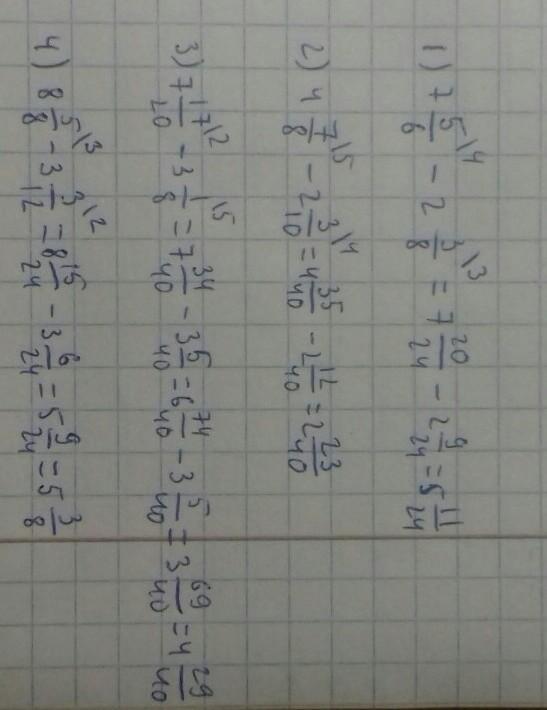 1) 7 5/6 \4 − 2 3/8 \3 = 7 20/24 − 2 9/24 = 5 11/24
2) 4 7/8 \5 − 2 3/10 \4 = 4 35/40 − 2 12/40 = 2 23/40
3) 7 17/20 \2 − 3 1/8 \5 = 7 34/40 − 3 5/40 = 6 74/40 − 3 5/40 = 3 69/40 = 4 29/40
4) 8 5/8 \3 − 3 3/12 \2 = 8 15/24 − 3 6/24 = 5 9/24 = 5 3/8